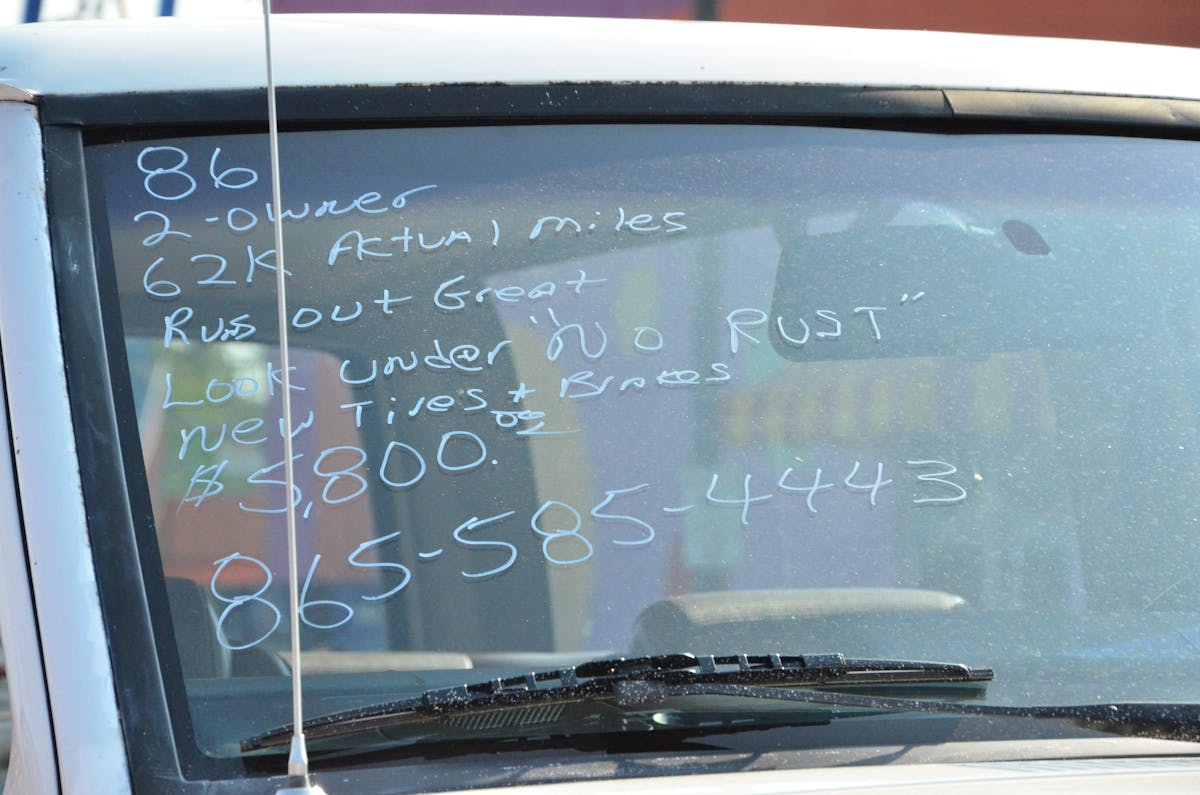 86
2-owner
62K Actual miles
Runs out Great
Look under "NO RUST"
New Tires + Brakes
$5,800.00
865-585-4443